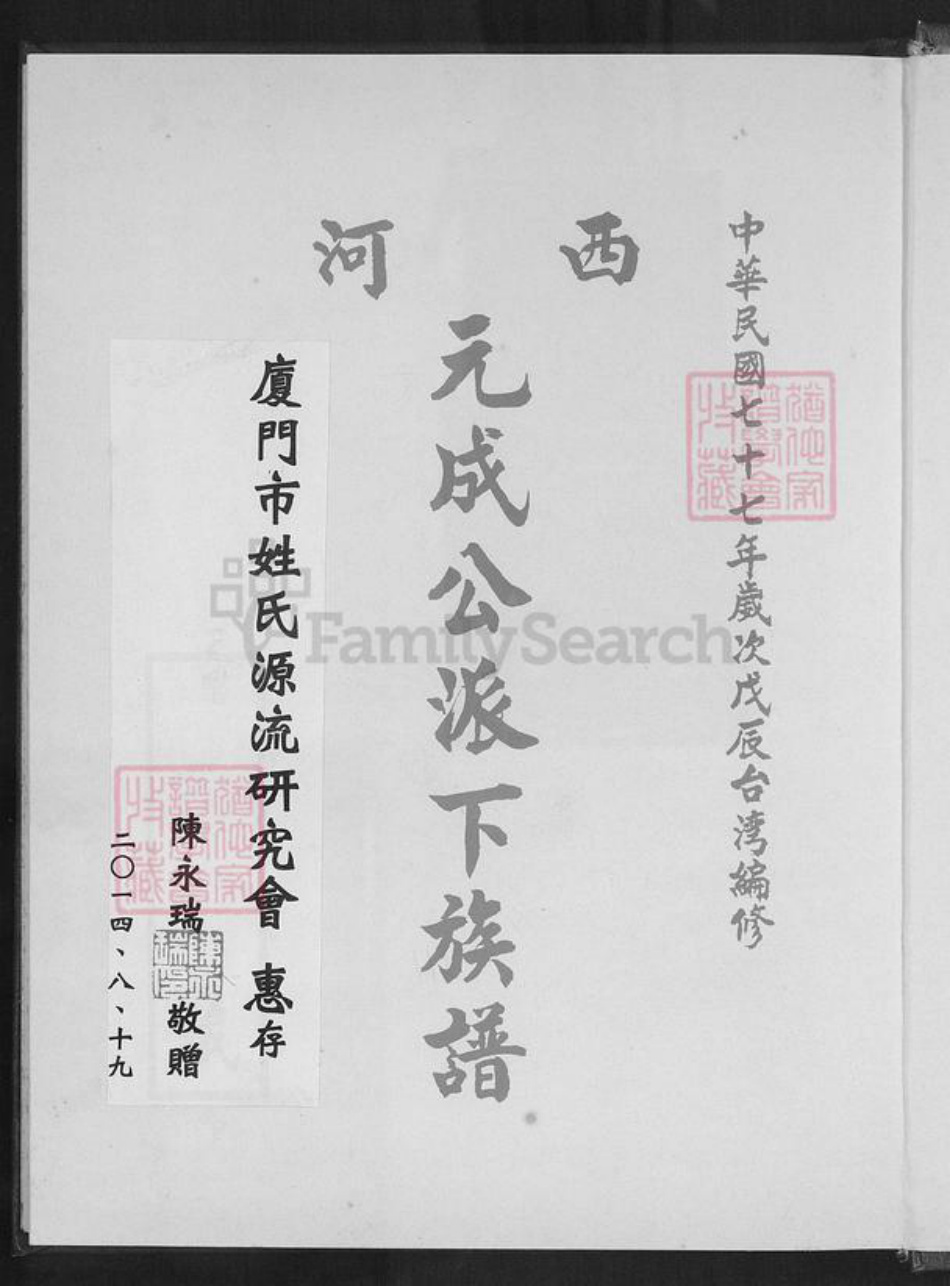 中華民國七十七年歲次戊辰台湾編修
西河
元成公派下族譜
廈門市姓氏源流研究會 惠存
陳永瑞 敬贈
二〇一四、八、十九
FamilySearch